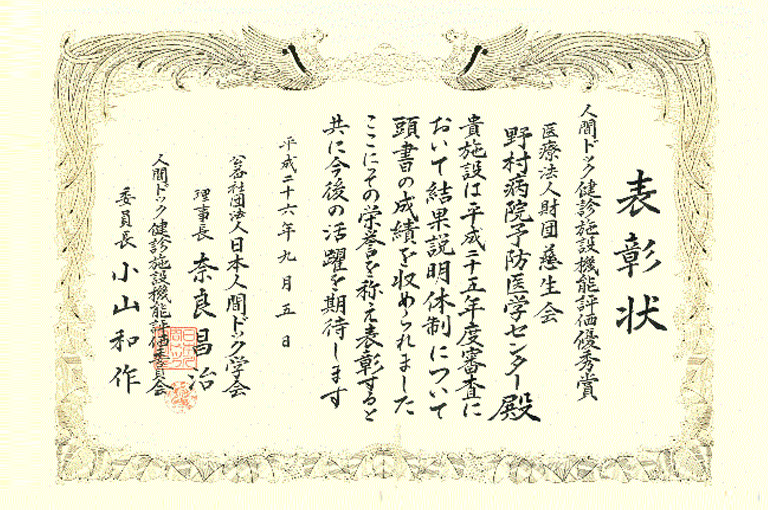 表彰状
人間ドック健診施設機能評価優秀賞
医療法人財団慈生会
野村病院予防医学センター殿
貴施設は平成二十五年度審査に
おいて結果説明体制について
頭書の成績を収められました
ここにその栄誉を称え表彰すると
共に今後の活躍を期待します
平成二十六年九月五日
公益社団法人日本人間ドック学会
理事長 奈良昌治
人間ドック健診施設機能評価委員会
委員長 小山和作